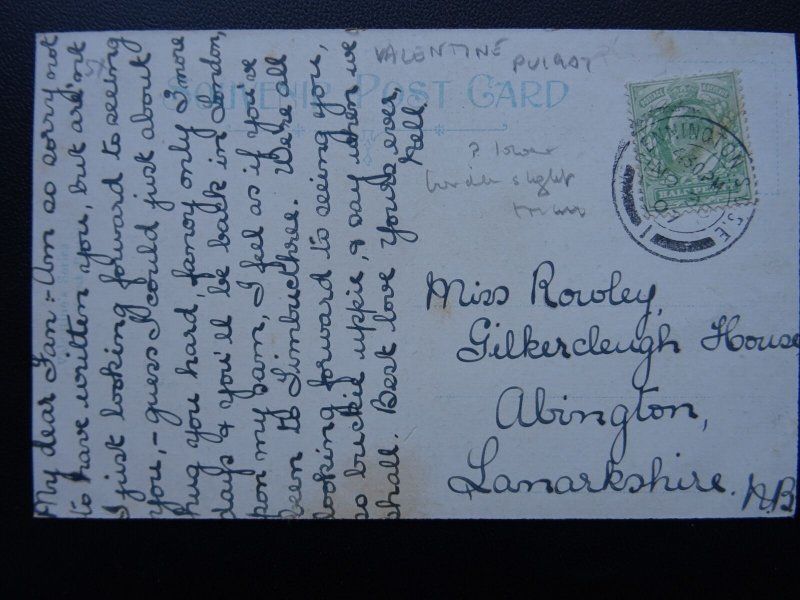 My dear Fan:- Am so sorry not
to have written you, but are in't
I just looking forward to seeing
you,- guess I could just about
hug you hard, fancy only 3 more
days & you'll be back in London,
'pon my sam, I feel as if you've
been to Timbucthree. We're all
looking forward to seeing you,
so buckie uppie, & day when we
shall. Best love yours ever,
Nell.
VALENTINE
SOUVENIR POST CARD
? lower
border slight
KENNINGTON S.E.
Miss Rowley,
Gilkercleugh House
Abington,
Lanarkshire. N.B